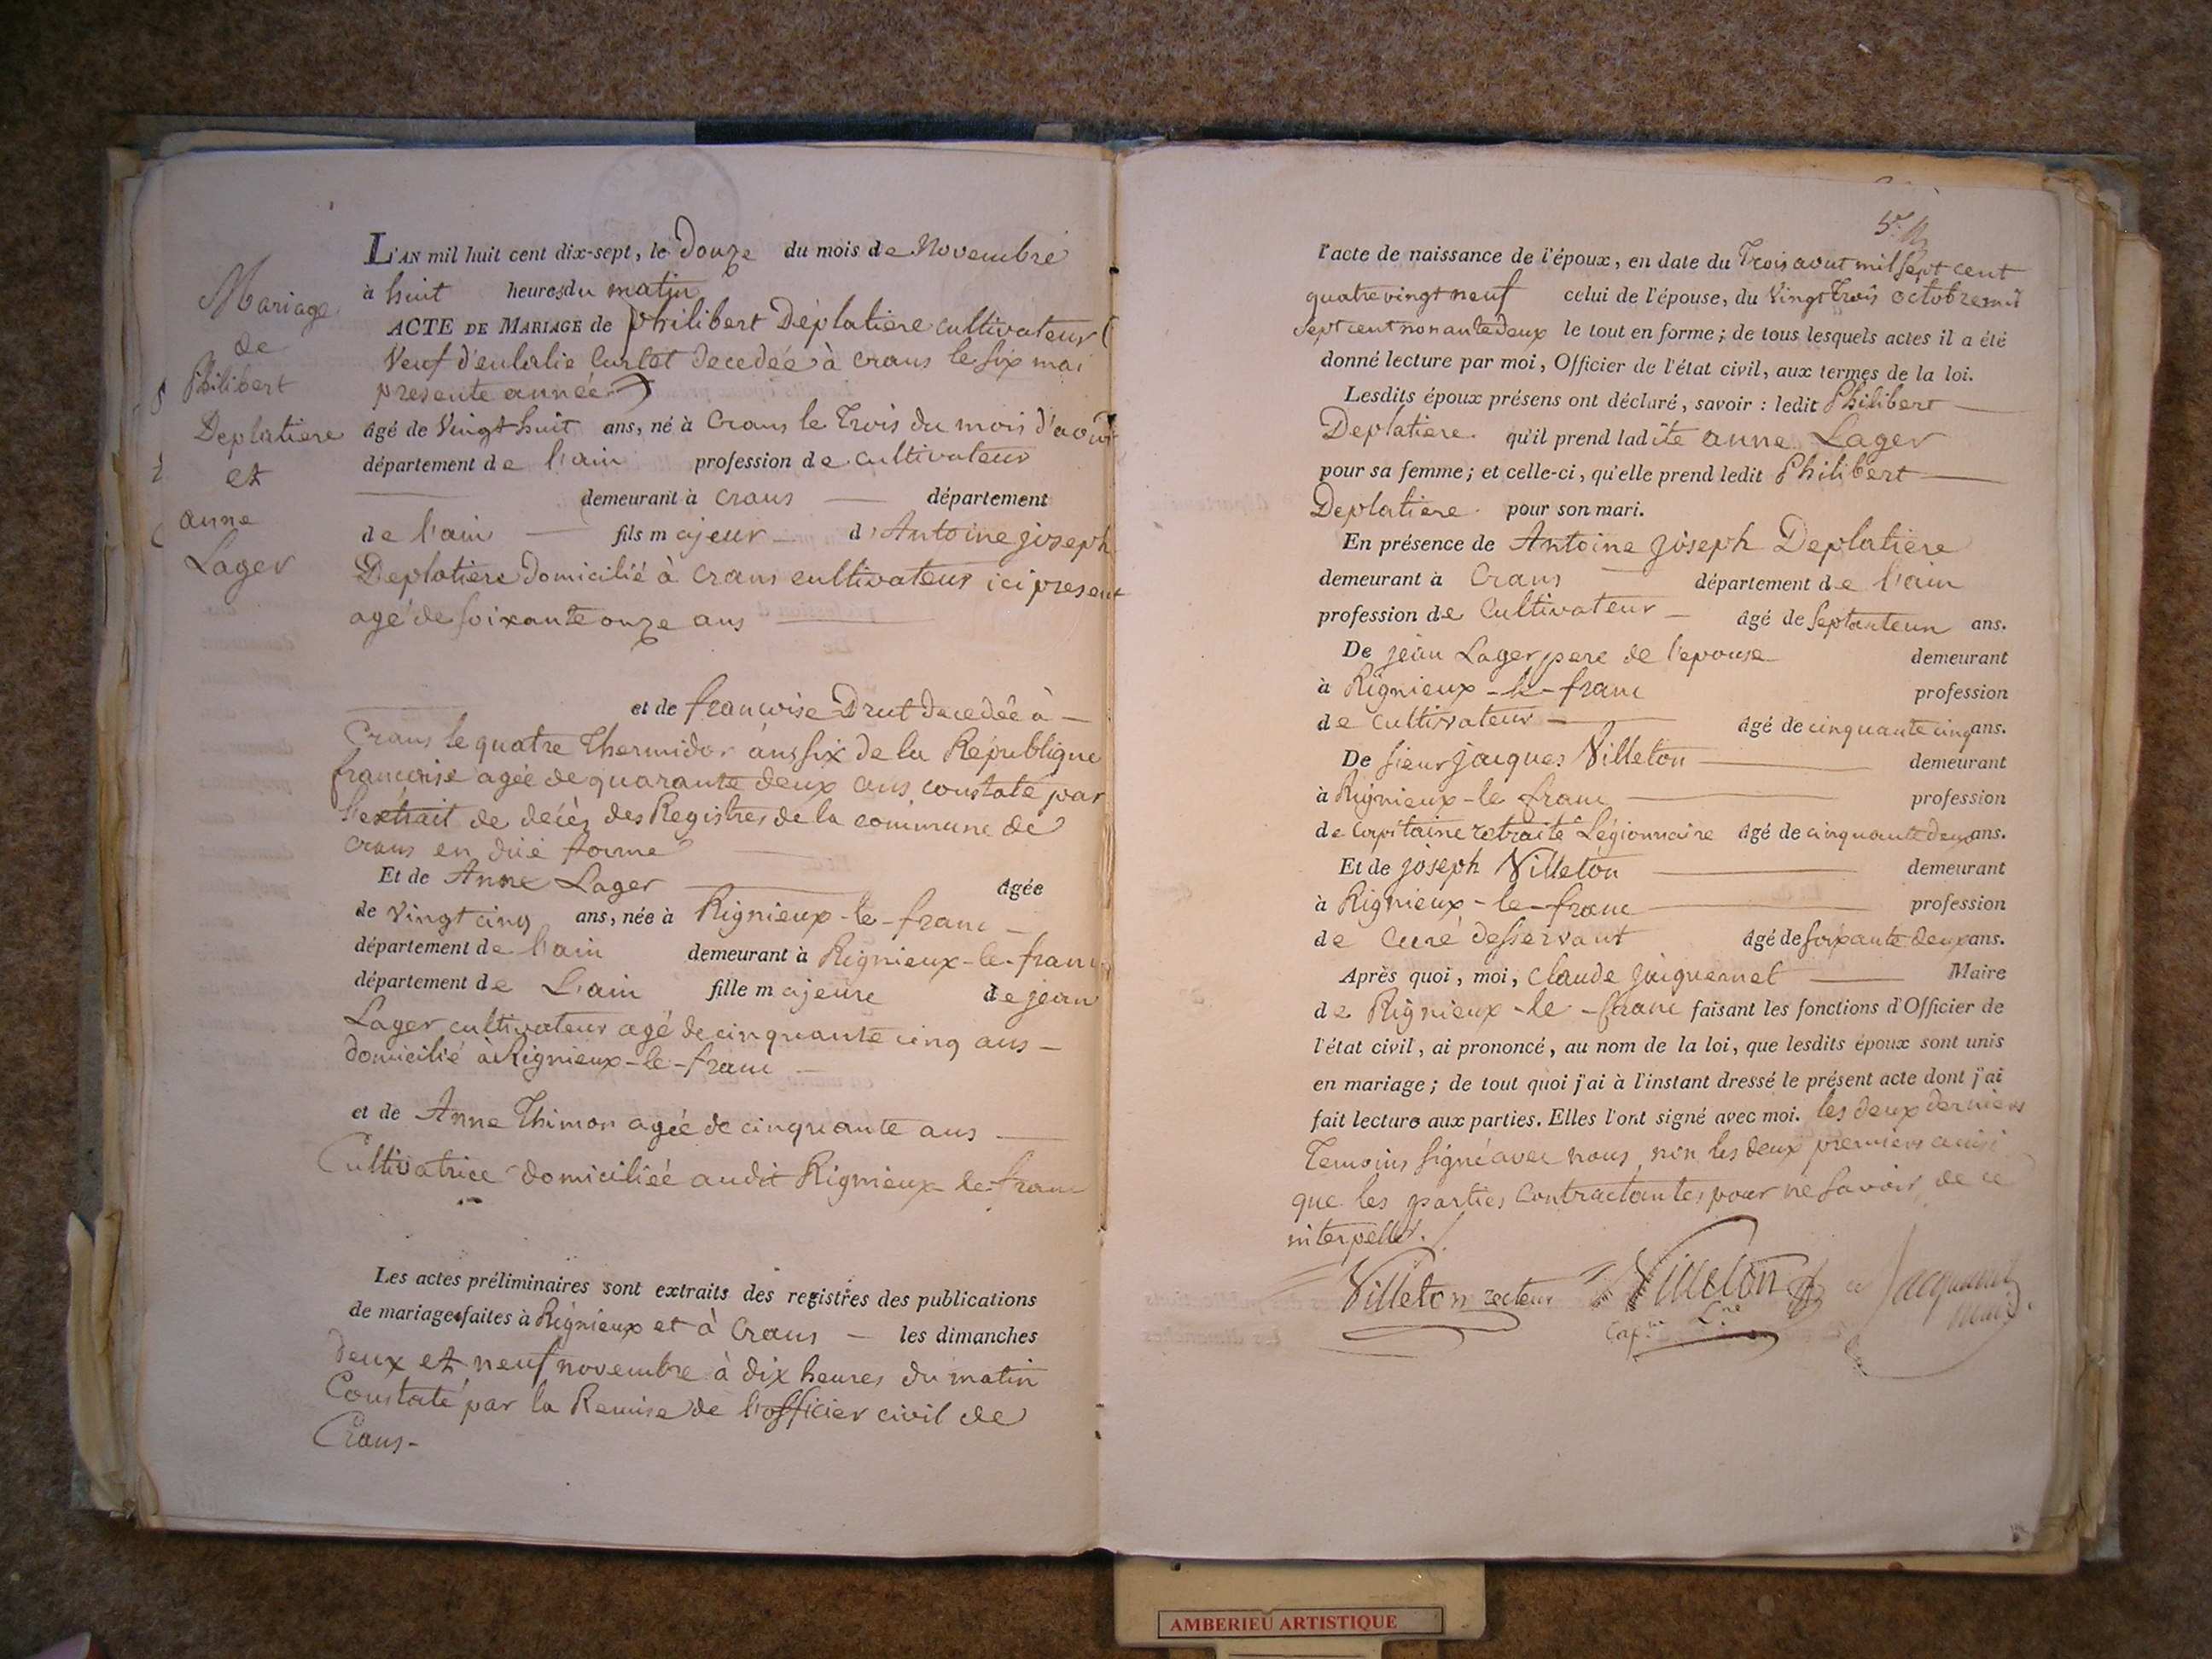 Mariage
de
Philibert
Deplatiere
et
anne
Lager
L'AN mil huit cent dix-sept, le Douze du mois de Novembre
à huit heures du matin
ACTE DE MARIAGE de Philibert Déplatiere cultivateur
Veuf d'eulalie Curtet decedée à crans le six mai
presente année
âgé de Vingt huit ans, né à Crans le Trois du mois d'aout
département de l'ain profession de cultivateur
demeurant à Crans département
de l'ain fils majeur d'Antoine joseph
Deplatiere Domicilié à Crans cultivateur ici present
agé de soixante onze ans
et de françoise Drut decedée à
Crans le quatre Thermidor ans six de la République
françoise agée de quarante deux ans constaté par
l'extrait de décès des Registres de la commune de
Crans en düe forme
Et de Anne Lager âgée
de Vingt cinq ans, née à Rignieux-le-franc
département de l'ain demeurant à Rignieux-le-franc
département de L'ain fille majeure de jean
Lager cultivateur agé de cinquante cinq ans
domicilié à Rignieux-le-franc
et de Anne Thimon agée de cinquante ans
Cultivatrice domiciliée audit Rignieux-le-franc
Les actes préliminaires sont extraits des registres des publications
de mariages faites à Rignieux et à Crans les dimanches
deux et neuf novembre à dix heures du matin
Constaté par la Remise de l'officier civil de
Crans.
l'acte de naissance de l'époux, en date du Trois aout mil sept cent
quatre vingt neuf celui de l'épouse, du Vingt trois octobre mil
sept cent nonante deux le tout en forme; de tous lesquels actes il a été
donné lecture par moi, Officier de l'état civil, aux termes de la loi.
Lesdits époux présens ont déclaré, savoir : ledit Philibert
Deplatiere qu'il prend ladite anne Lager
pour sa femme; et celle-ci, qu'elle prend ledit Philibert
Deplatiere pour son mari.
En présence de Antoine joseph Deplatiere
demeurant à Crans département de l'ain
profession de Cultivateur âgé de septante un ans.
De jean Lager pere de l'epouse demeurant
à Rignieux-le-franc profession
de cultivateur âgé de cinquante cinq ans.
De sieur jacques Villeton demeurant
à Rignieux-le franc profession
de capitaine retraité Légionnaire âgé de cinquante deux ans.
Et de joseph Villeton demeurant
à Rignieux-le-franc profession
de Curé desservant âgé de soixante deux ans.
Après quoi, moi, Claude Jaiquemet Maire
de Rignieux-le-franc faisant les fonctions d'Officier de
l'état civil, ai prononcé, au nom de la loi, que lesdits époux sont unis
en mariage; de tout quoi j'ai à l'instant dressé le présent acte dont j'ai
fait lecture aux parties. Elles l'ont signé avec moi. les deux derniers
Temoins signé avec nous, non les deux premiers ainsi
que les parties Contractantes pour ne savoir de ce
interpellés.
Villeton recteur Villeton
Cap.ne L.re
AMBERIEU ARTISTIQUE